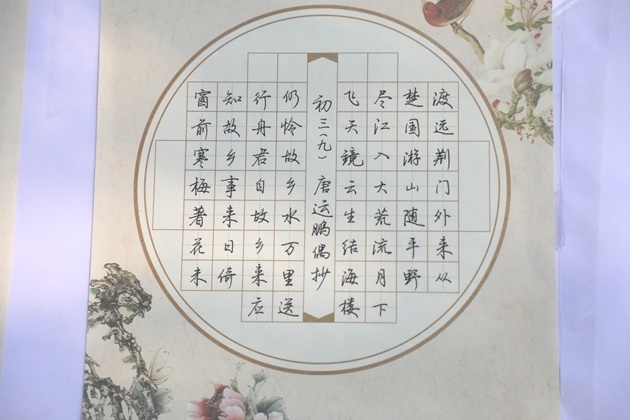 渡远荆门外来从
楚国游山随平野
尽江入大荒流月下
飞天镜云生结海楼
初三(九) 唐运鹏偶抄
仍怜故乡水万里送
行舟君自故乡来应
知故乡事来日倚
窗前寒梅著花未